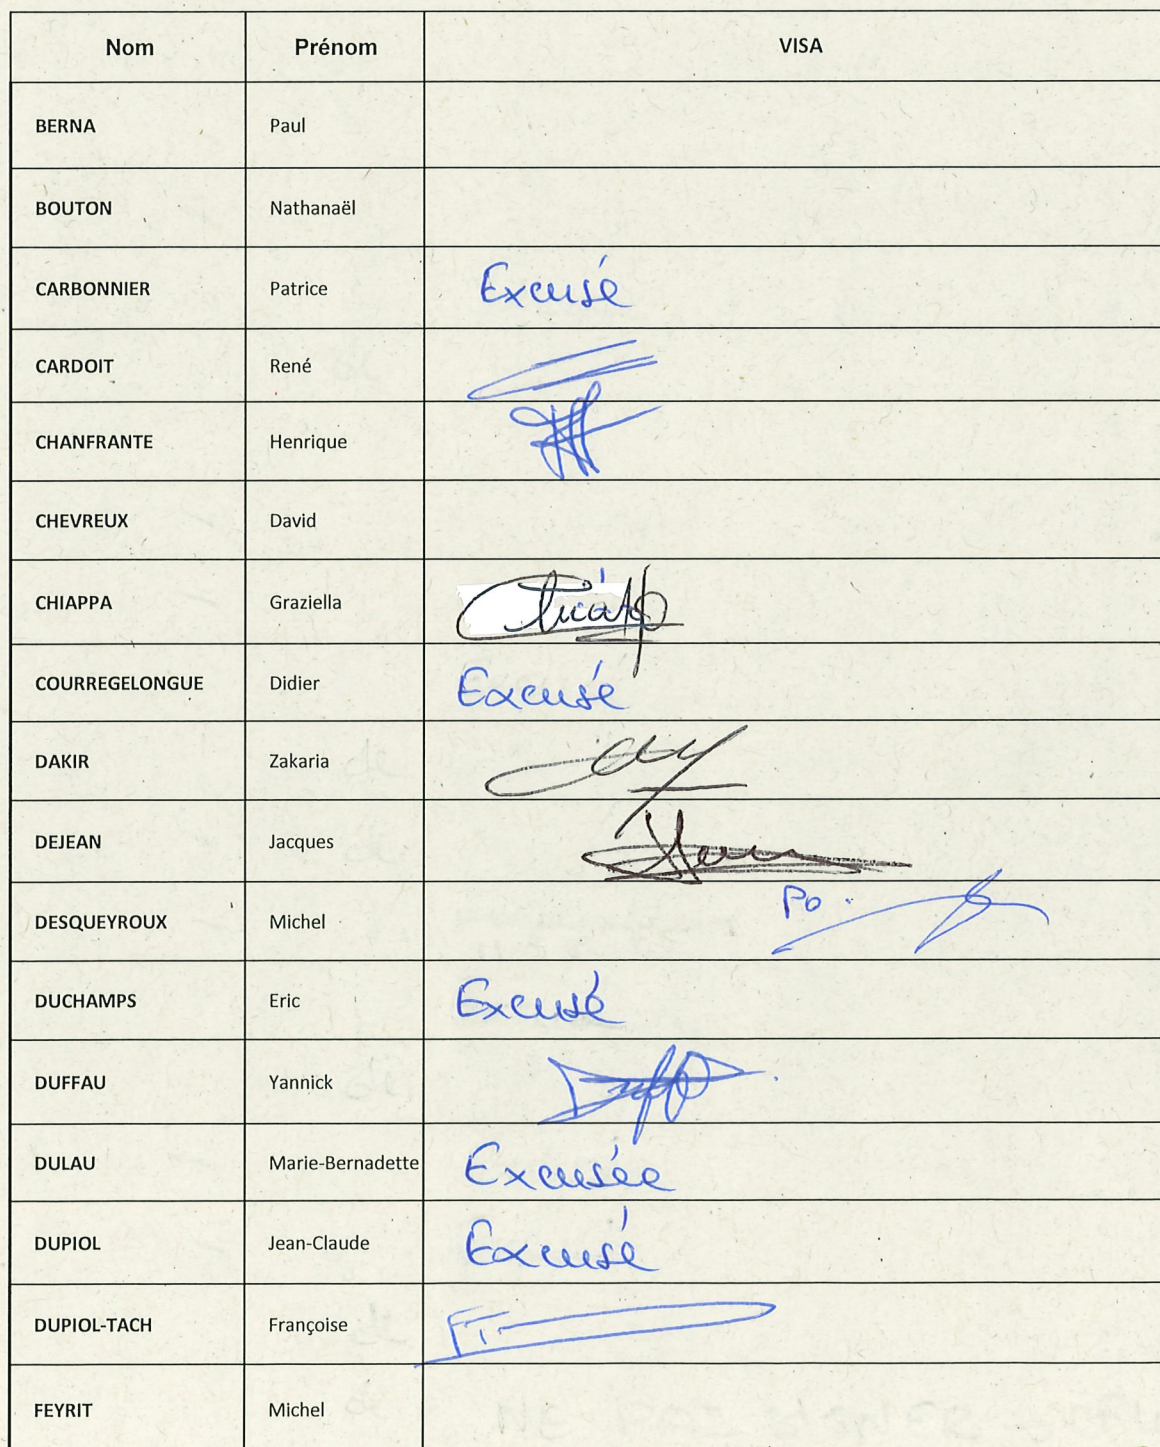 Nom Prénom VISA
BERNA Paul
BOUTON Nathanaël
CARBONNIER Patrice Excusé
CARDOIT René
CHANFRANTE Henrique
CHEVREUX David
CHIAPPA Graziella
COURREGELONGUE Didier Excusé
DAKIR Zakaria
DEJEAN Jacques
DESQUEYROUX Michel Po
DUCHAMPS Eric Excusé
DUFFAU Yannick
DULAU Marie-Bernadette Excusée
DUPIOL Jean-Claude Excusé
DUPIOL-TACH Françoise
FEYRIT Michel